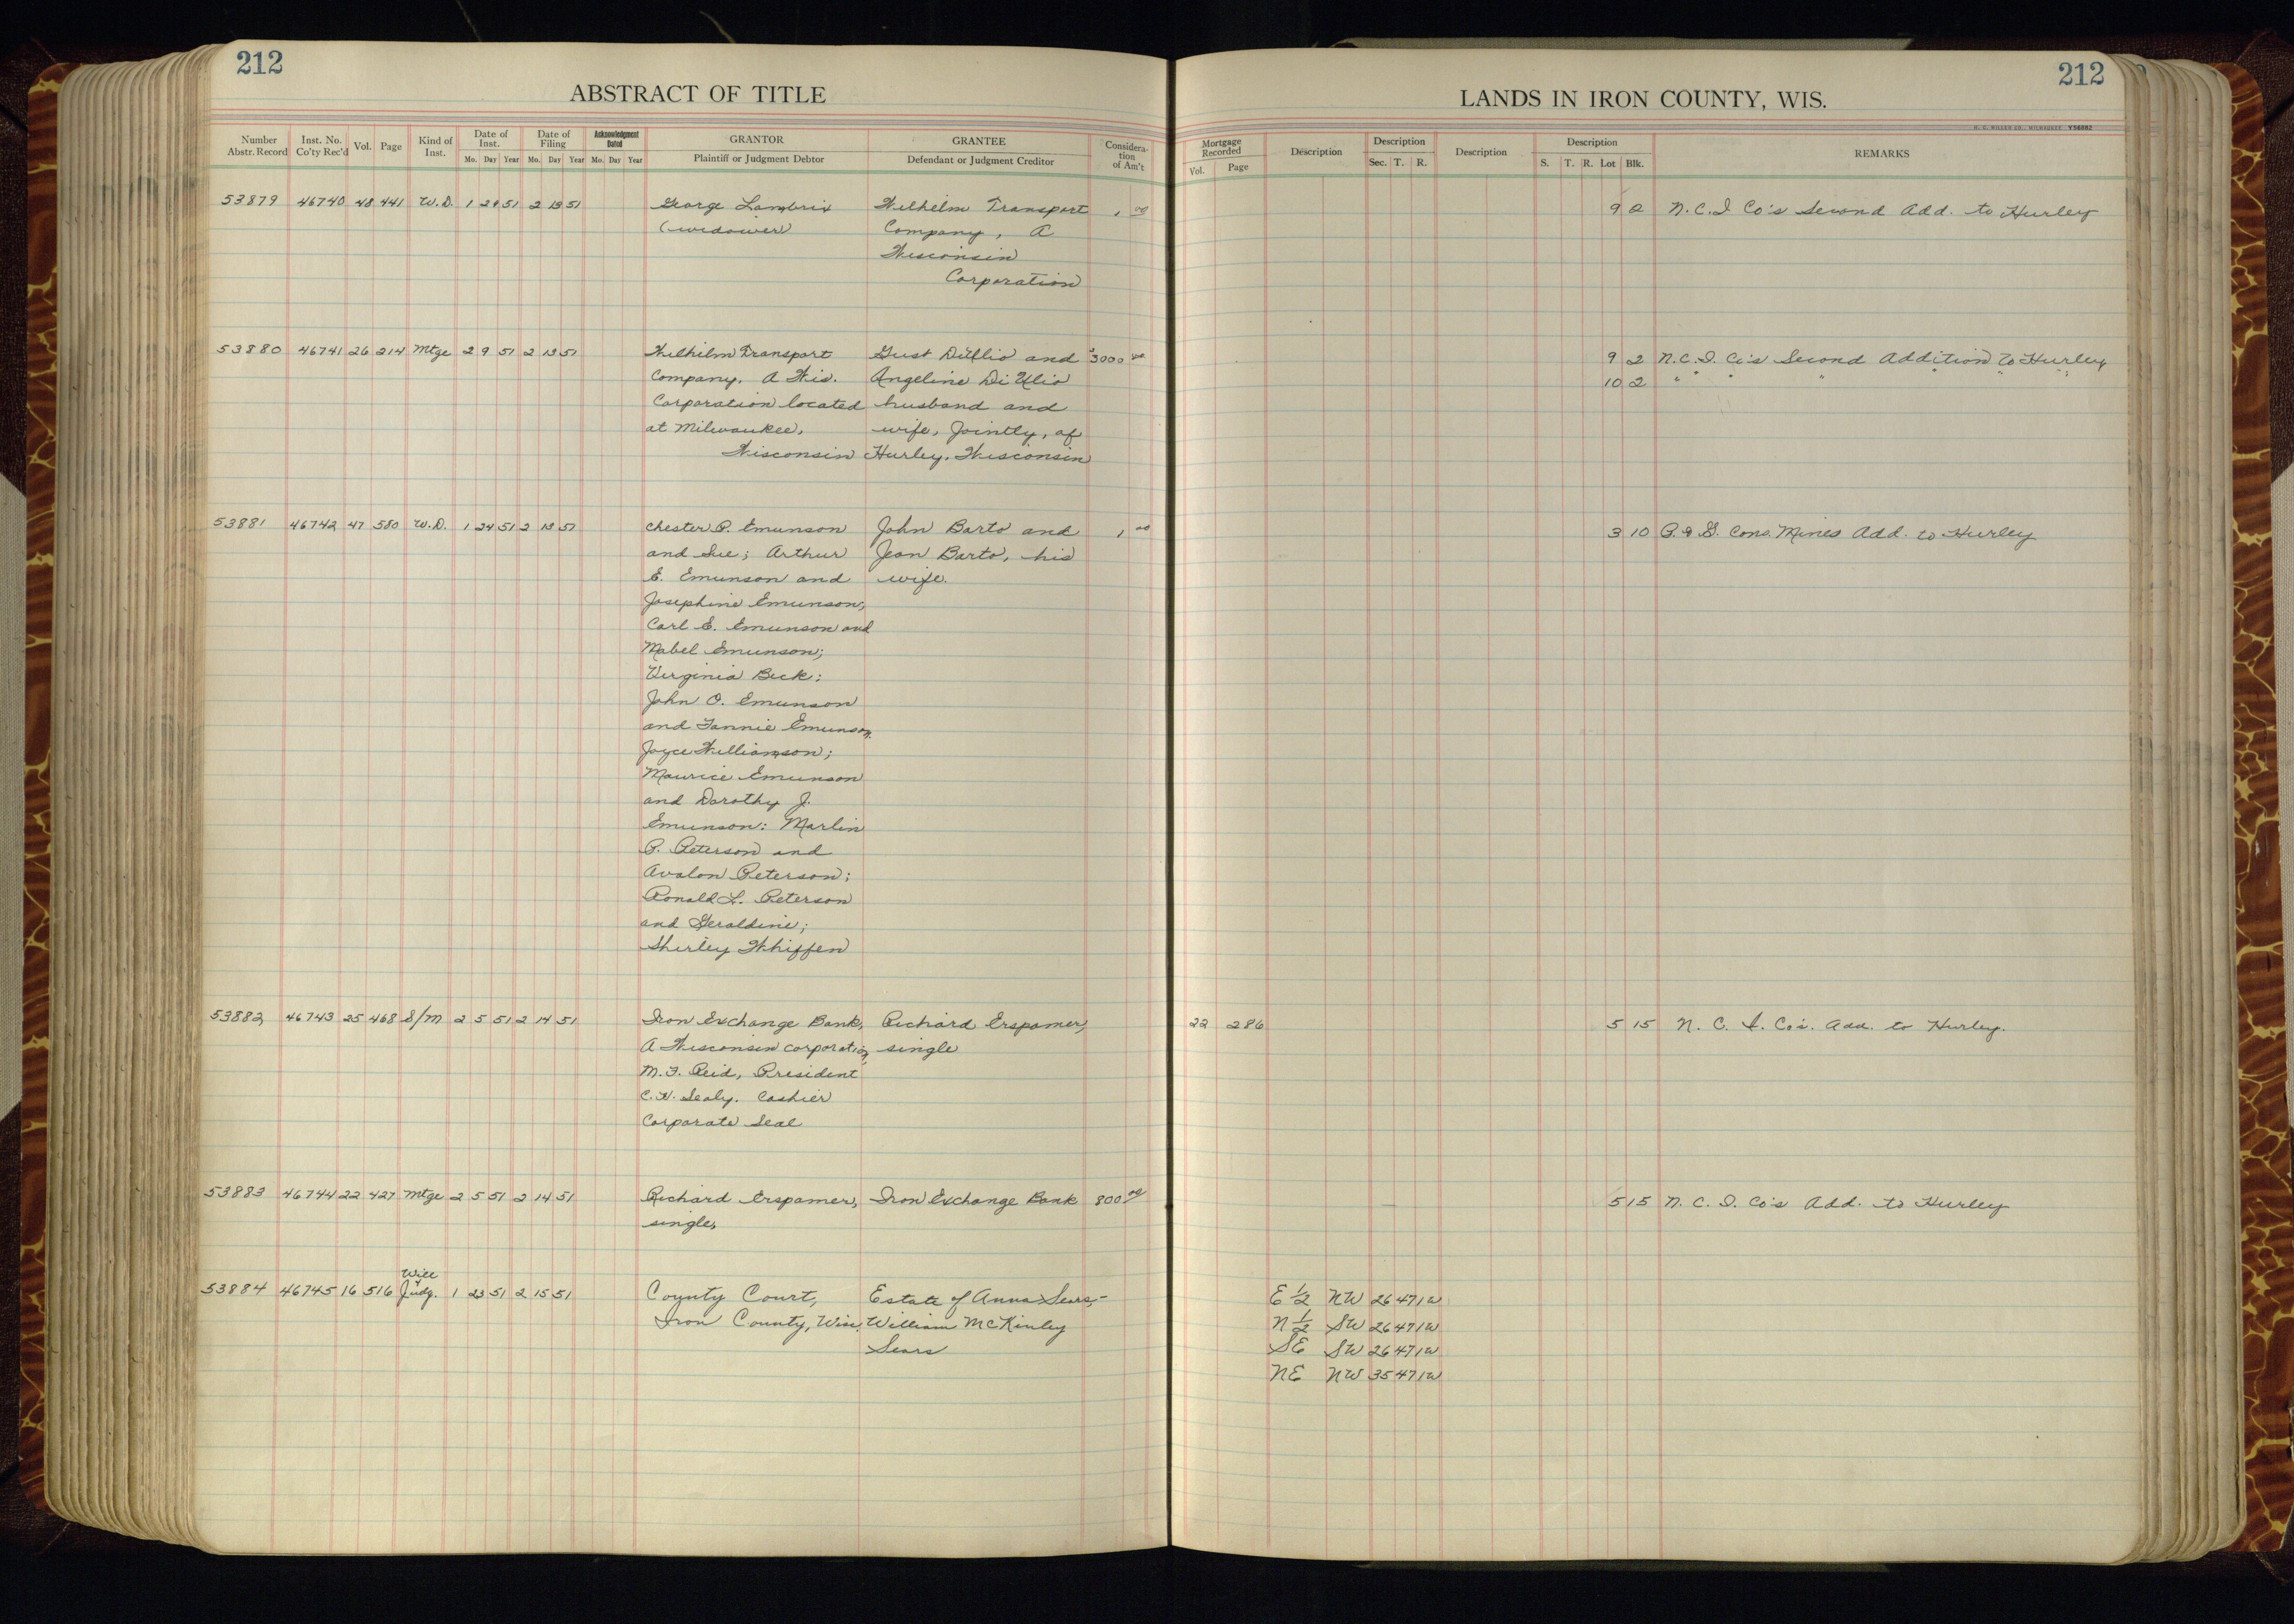 212
ABSTRACT OF TITLE
Number Abstr. Record Inst. No. Co'ty Rec'd Vol. Page Kind of Inst. Date of Inst. Mo. Day Year Date of Filing Mo. Day Year Acknowledgment Dated Mo. Day Year GRANTOR Plaintiff or Judgment Debtor GRANTEE Defendant or Judgment Creditor Considera-tion of Am't
212
LANDS IN IRON COUNTY, WIS.
H. C. MILLER CO., MILWAUKEE Y56882
Mortgage Recorded Vol. Page Description Description Sec. T. R. Description Description S. T. R. Lot Blk. REMARKS
53879 46740 48 441 W.D. 1 29 51 2 13 51 George Lambrix Wilhelm Transport 1 00 9 2 N.C.I Co's Second Add. to Hurley
(widower) Company, A
Wisconsin
Corporation
53880 46741 26 214 Mtge 2 9 51 2 13 51 Wilhelm Transport Gust DiUlio and $3000 00 9 2 N.C.I. Co's Second Addition to Hurley
Company, A Wis. Angeline Di Ulio 10 2 " " " " " "
Corporation located husband and
at Milwaukee, wife, Jointly, of
Wisconsin Hurley, Wisconsin
53881 46742 47 580 W.D. 1 24 51 2 13 51 Chester P. Emunson John Barto and 1 00 3 10 P. & G. Cons. Mines Add. to Hurley
and Sue; Arthur Jean Barto, his
E. Emunson and wife.
Josephine Emunson;
Carl E. Emunson and
Mabel Emunson;
Virginia Beck;
John O. Emunson
and Fannie Emunson,
Joyce Williamson;
Maurice Emunson
and Dorothy J.
Emunson: Marlin
P. Peterson and
Avalon Peterson;
Ronald L. Peterson
and Geraldine;
Shirley Whiffen
53882 46743 25 468 S/M 2 5 51 2 14 51 Iron Exchange Bank, Richard Erspamer, 22 286 5 15 N. C. I. Co's. Add. to Hurley.
A Wisconsin corporation, single
M.F. Reid, President
C.H. Sealy. Cashier
Corporate Seal
53883 46744 22 427 Mtge 2 5 51 2 14 51 Richard Erspamer, Iron Exchange Bank 800 00 5 15 N. C. I. Co's Add. to Hurley
single,
Will
53884 46745 16 516 Judg. 1 23 51 2 15 51 County Court, Estate of Anna Sears,- E 1/2 NW 26 47 1W
Iron County, Wis. William McKinley N 1/2 SW 26 47 1W
Sears SE SW 26 47 1W
NE NW 35 47 1W